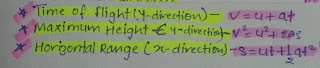 * Time of flight (y-direction) - v = u + at
* Maximum Height - (y-direction) - v² = u² + 2as
* Horizontal Range (x-direction) - s = ut + 1/2 at²